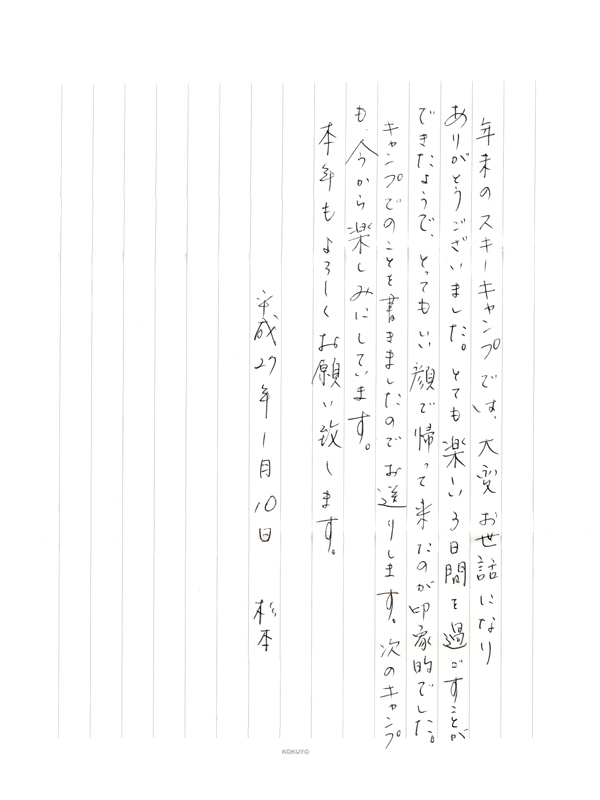 年末のスキーキャンプでは、大変お世話になり
ありがとうございました。とても楽しい3日間を過ごすことが
できたようで、とってもいい顔で帰って来たのが印象的でした。
キャンプでのことを書きましたのでお送りします。次のキャンプ
も、今から楽しみにしています。
本年もよろしくお願い致します。
平成27年1月10日 杉本
KOKUYO